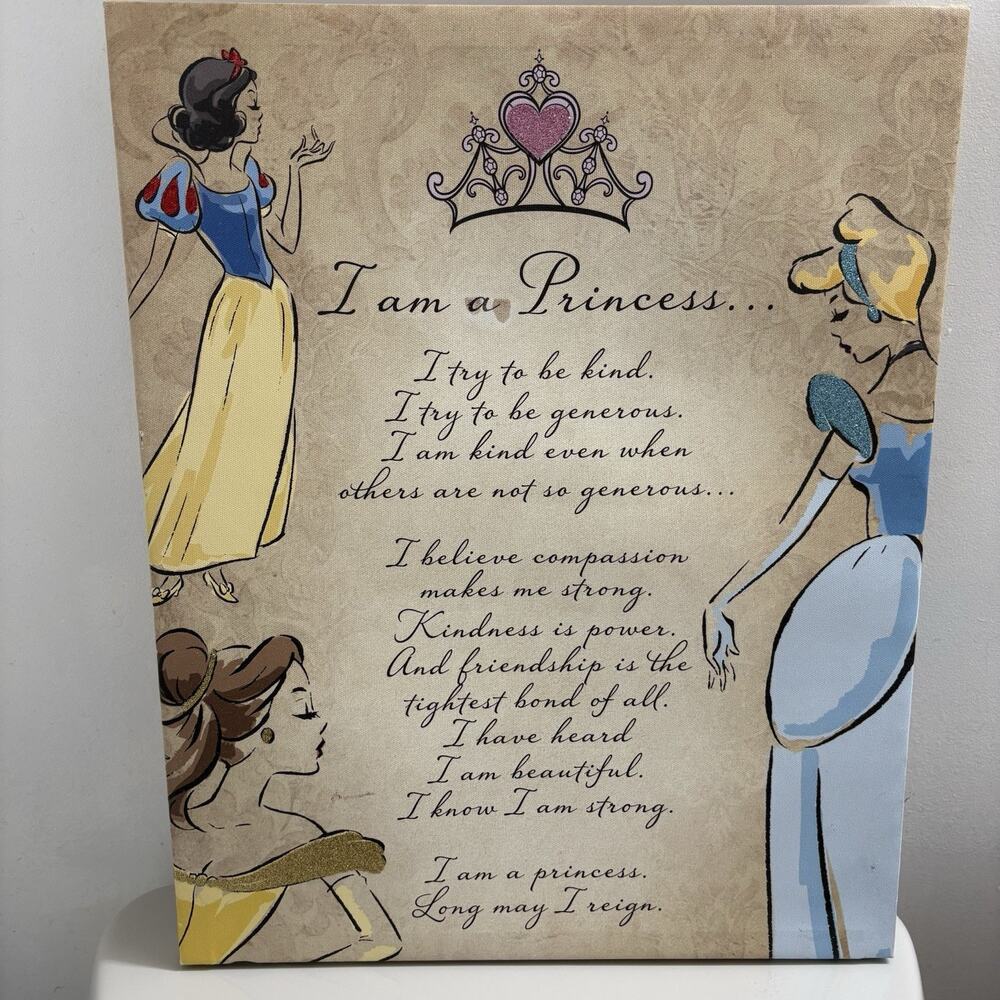 I am a Princess...
I try to be kind.
I try to be generous.
I am kind even when
others are not so generous...
I believe compassion
makes me strong.
Kindness is power.
And friendship is the
tightest bond of all.
I have heard
I am beautiful.
I know I am strong.
I am a princess.
Long may I reign.